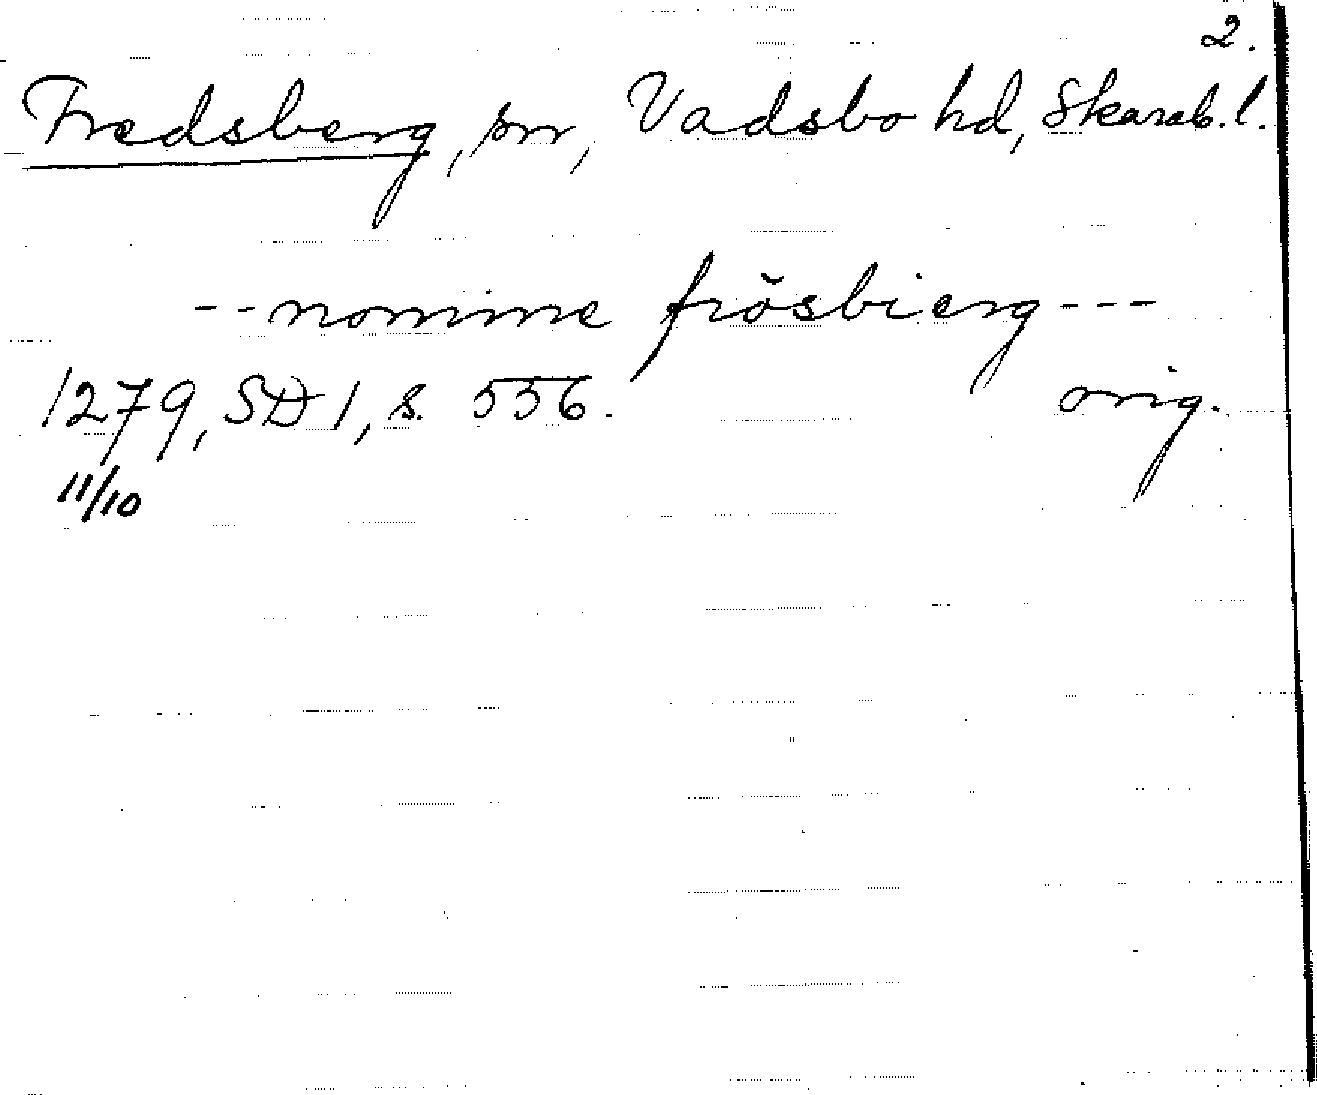 2.
Fredsberg, sn, Vadsbo hd, Skarab. l.
-- nomine frösbierg ---
1279, SD 1, s. 556. orig.
11/10